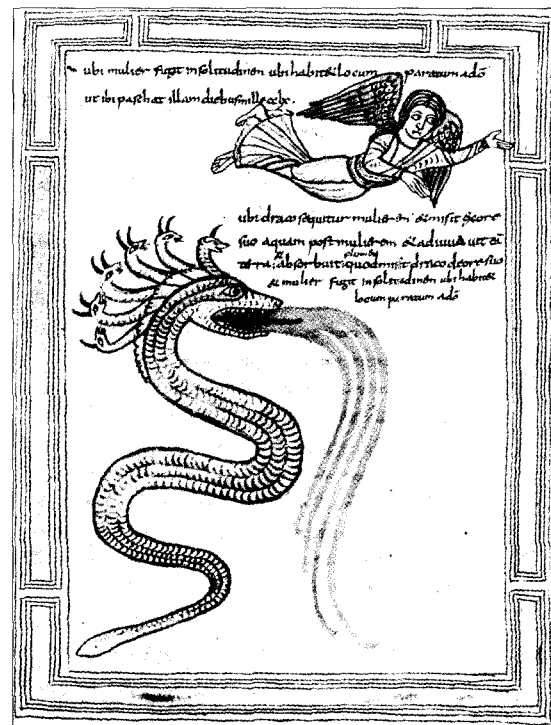 ubi mulier fugit insolitudinen ubi habitet locum paratum adō
ut ibi paschat illam diebus mille cclx.
ubi draco sequitur mulierem et misit deore
suo aquam post mulierem et adiuvit
tera absorbuit quod misit draco deore suo
et mulier fugit insolitudinen ubi habitet
locum paratum adō